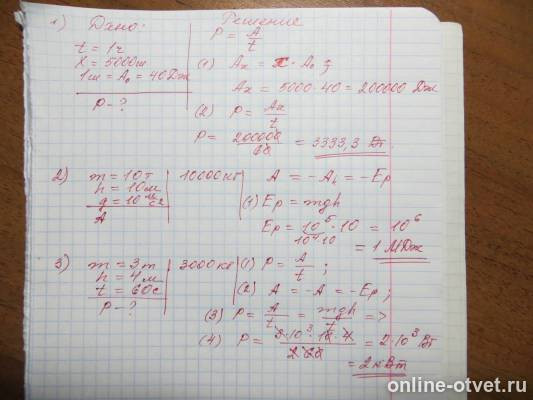 1) Дано:
t = 1ч
X = 5000ш
1ш = A₀ = 40Дж
P - ?
Решение
P = A/t
(1) Aₓ = X · A₀
Aₓ = 5000 · 40 = 200000 Дж
(2) P = Aₓ/t
P = 200000/60 = 3333,3 Вт
2) m = 10т | 10000кг
h = 10м
g = 10 м/с²
A
A = -A₁ = -Eр
(1) Eр = mgh
Eр = 10⁵ · 10 = 10⁶
10⁴·10
= 1 МДж
3) m = 3т | 3000кг
h = 4м
t = 60с
P - ?
(1) P = A/t ;
(2) A = -A = -Eр ;
(3) P = A/t = mgh/t =>
(4) P = 3·10³·10·4/60 = 2·10³ Вт
= 2кВт
online-otvet.ru